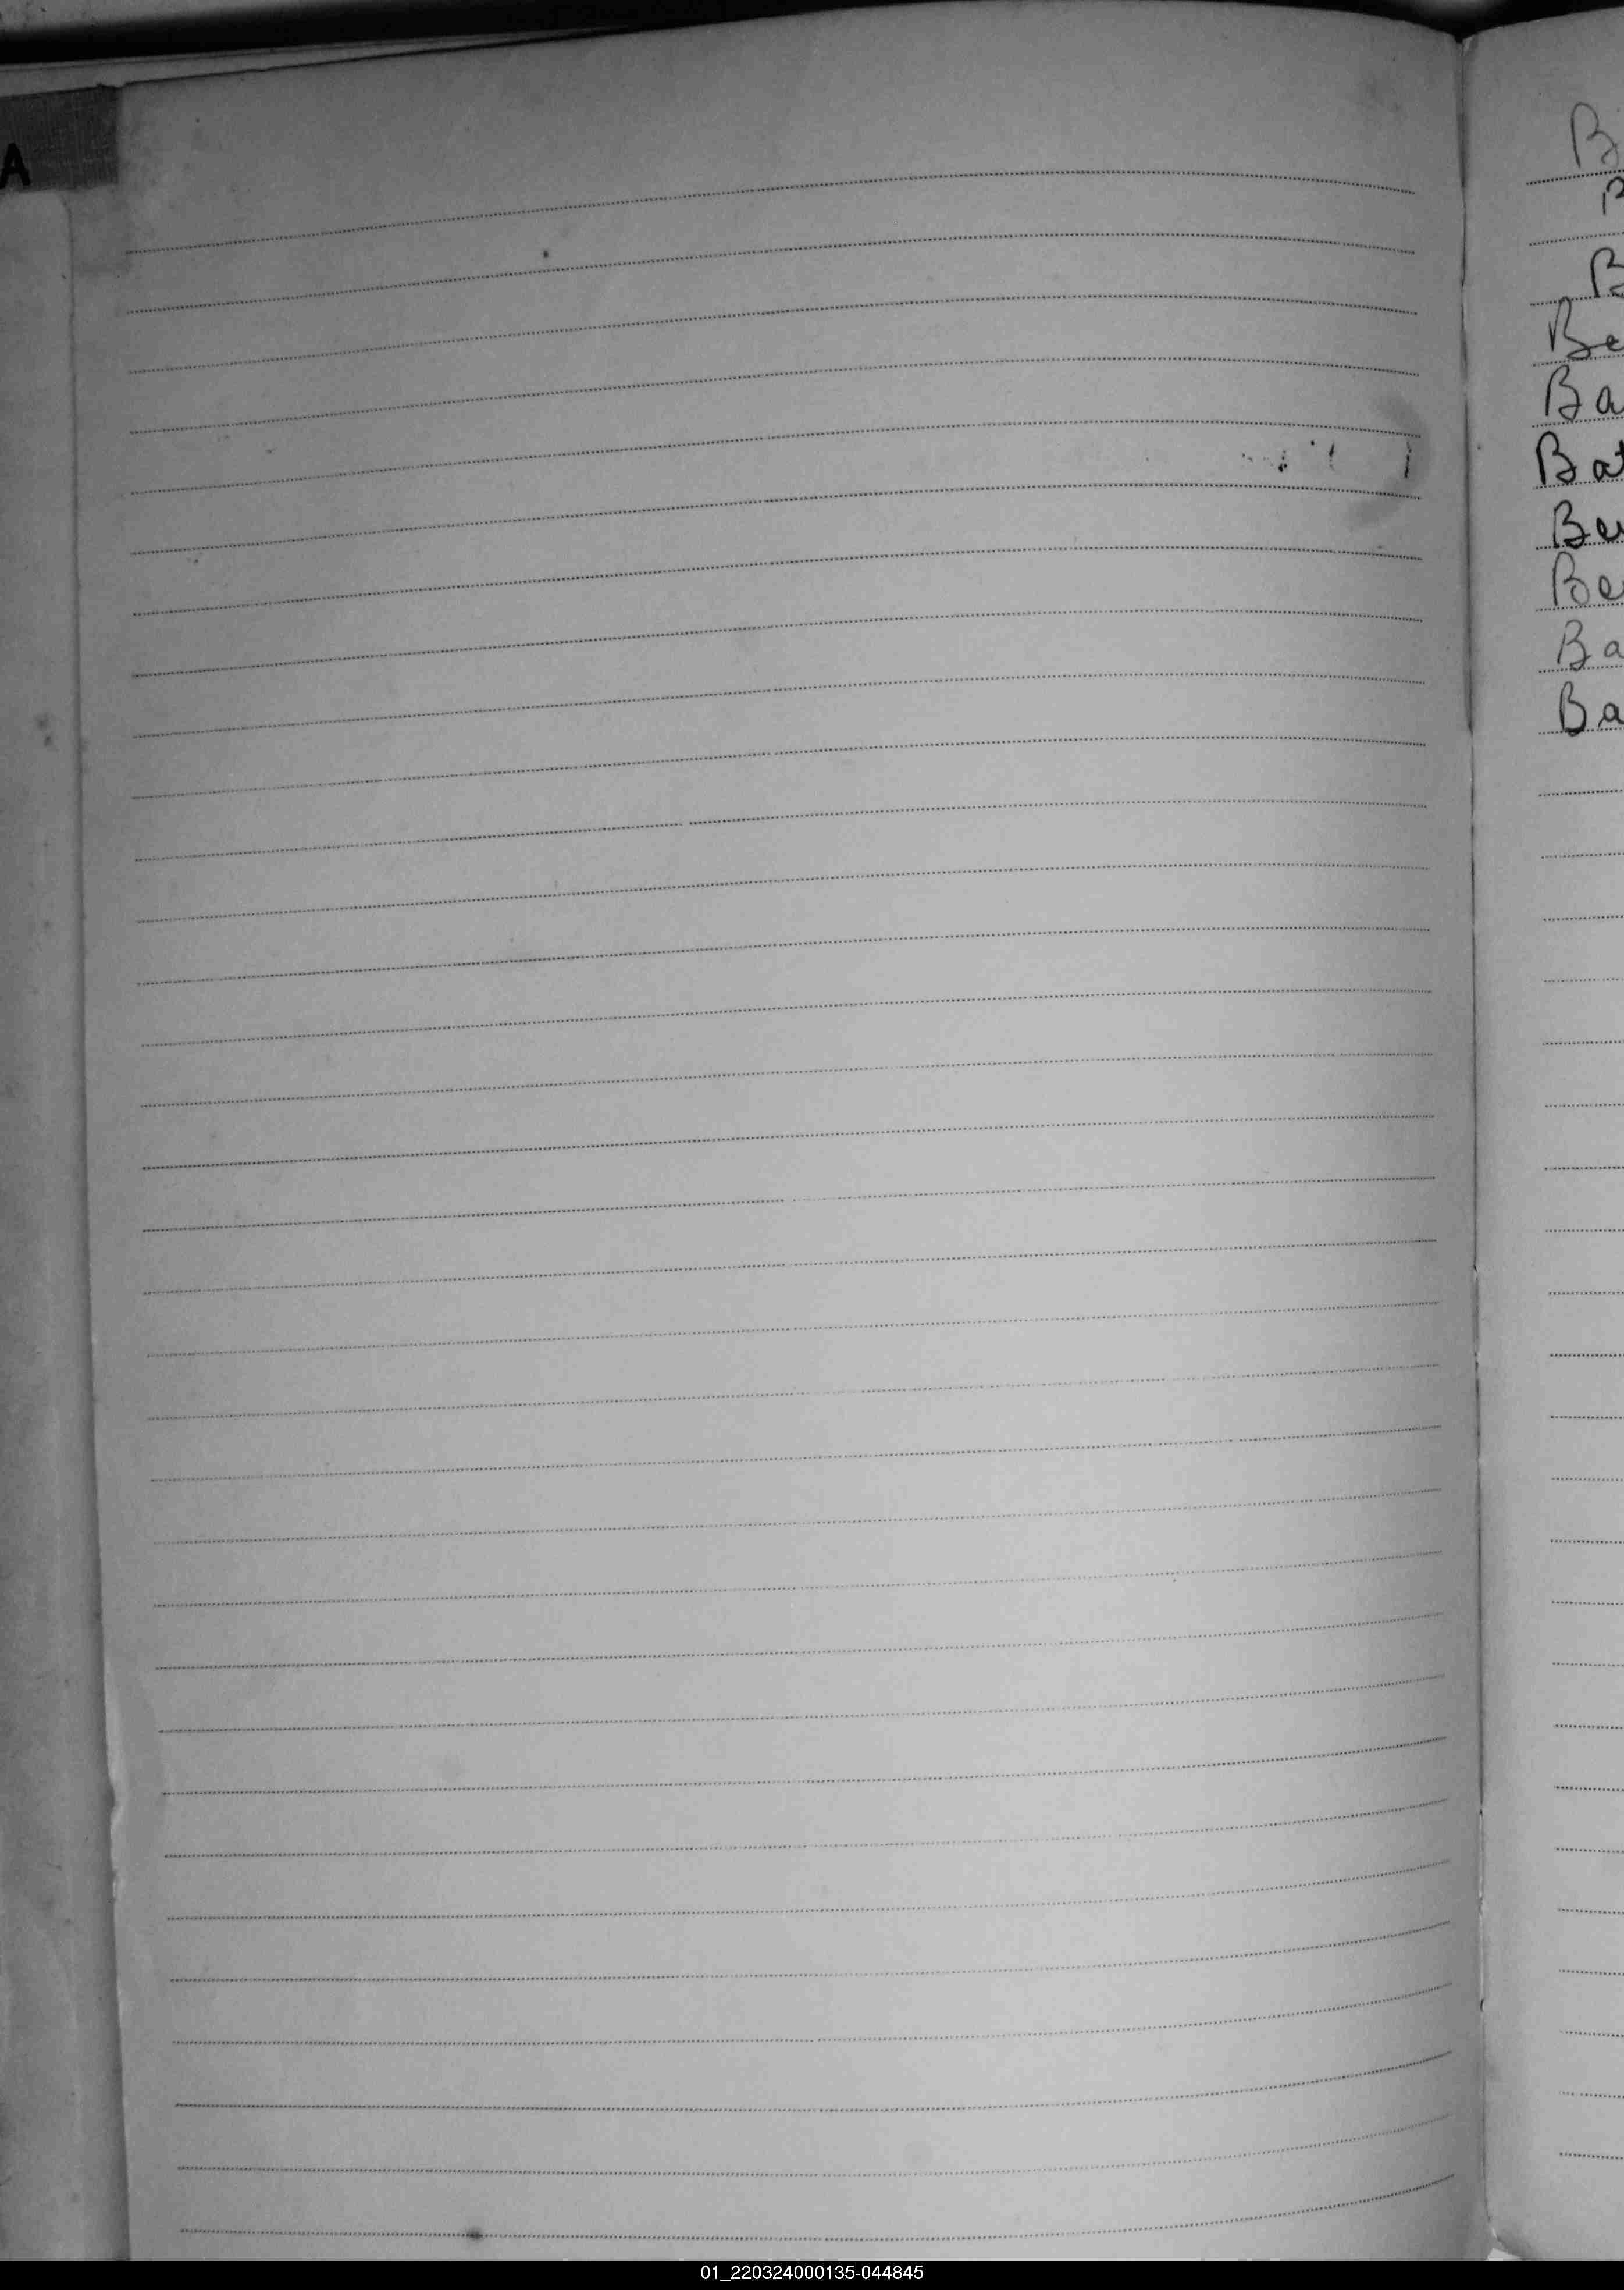 A
B
B
B
Be
Ba
Bat
Be
Be
Ba
Ba
01_220324000135-044845